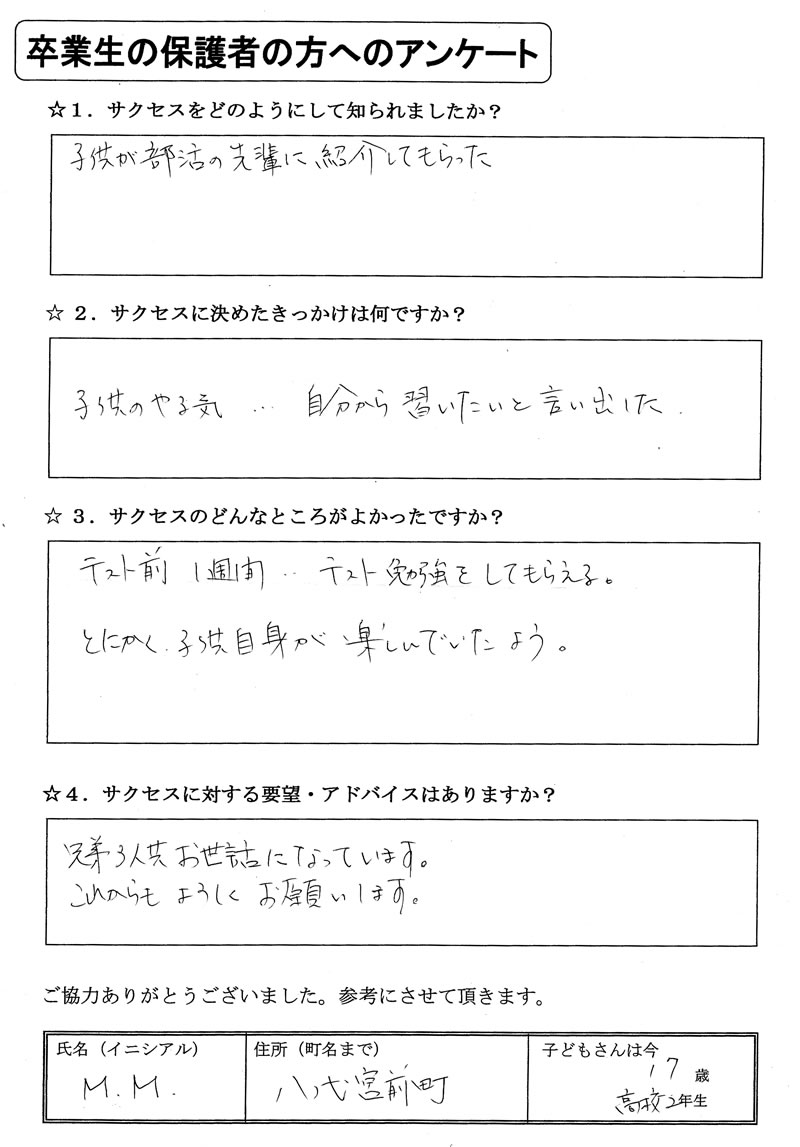 卒業生の保護者の方へのアンケート
☆１．サクセスをどのようにして知られましたか？
子供が部活の先輩に紹介してもらった
☆ ２．サクセスに決めたきっかけは何ですか？
子供のやる気 … 自分から習いたいと言い出した.
☆ ３．サクセスのどんなところがよかったですか？
テスト前 1週間 … テスト勉強をしてもらえる。
とにかく、子供自身が楽しんでいたよう。
☆４．サクセスに対する要望・アドバイスはありますか？
兄弟3人共お世話になっています。
これからも よろしく お願いします。
ご協力ありがとうございました。参考にさせて頂きます。
氏名（イニシアル） 住所（町名まで） 子どもさんは今
M.M. 八代宮前町 17 歳
高校2年生